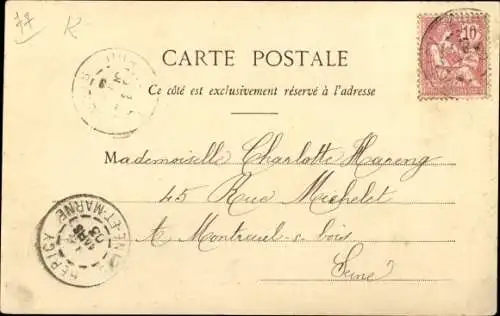 77 K
10
CARTE POSTALE
Ce côté est exclusivement réservé à l'adresse
Mademoiselle Charlotte Hareng
45 Rue Michelet
A Montreuil-s-bois
Seine
HERICY
MARS
03
NE-ET-MARNE